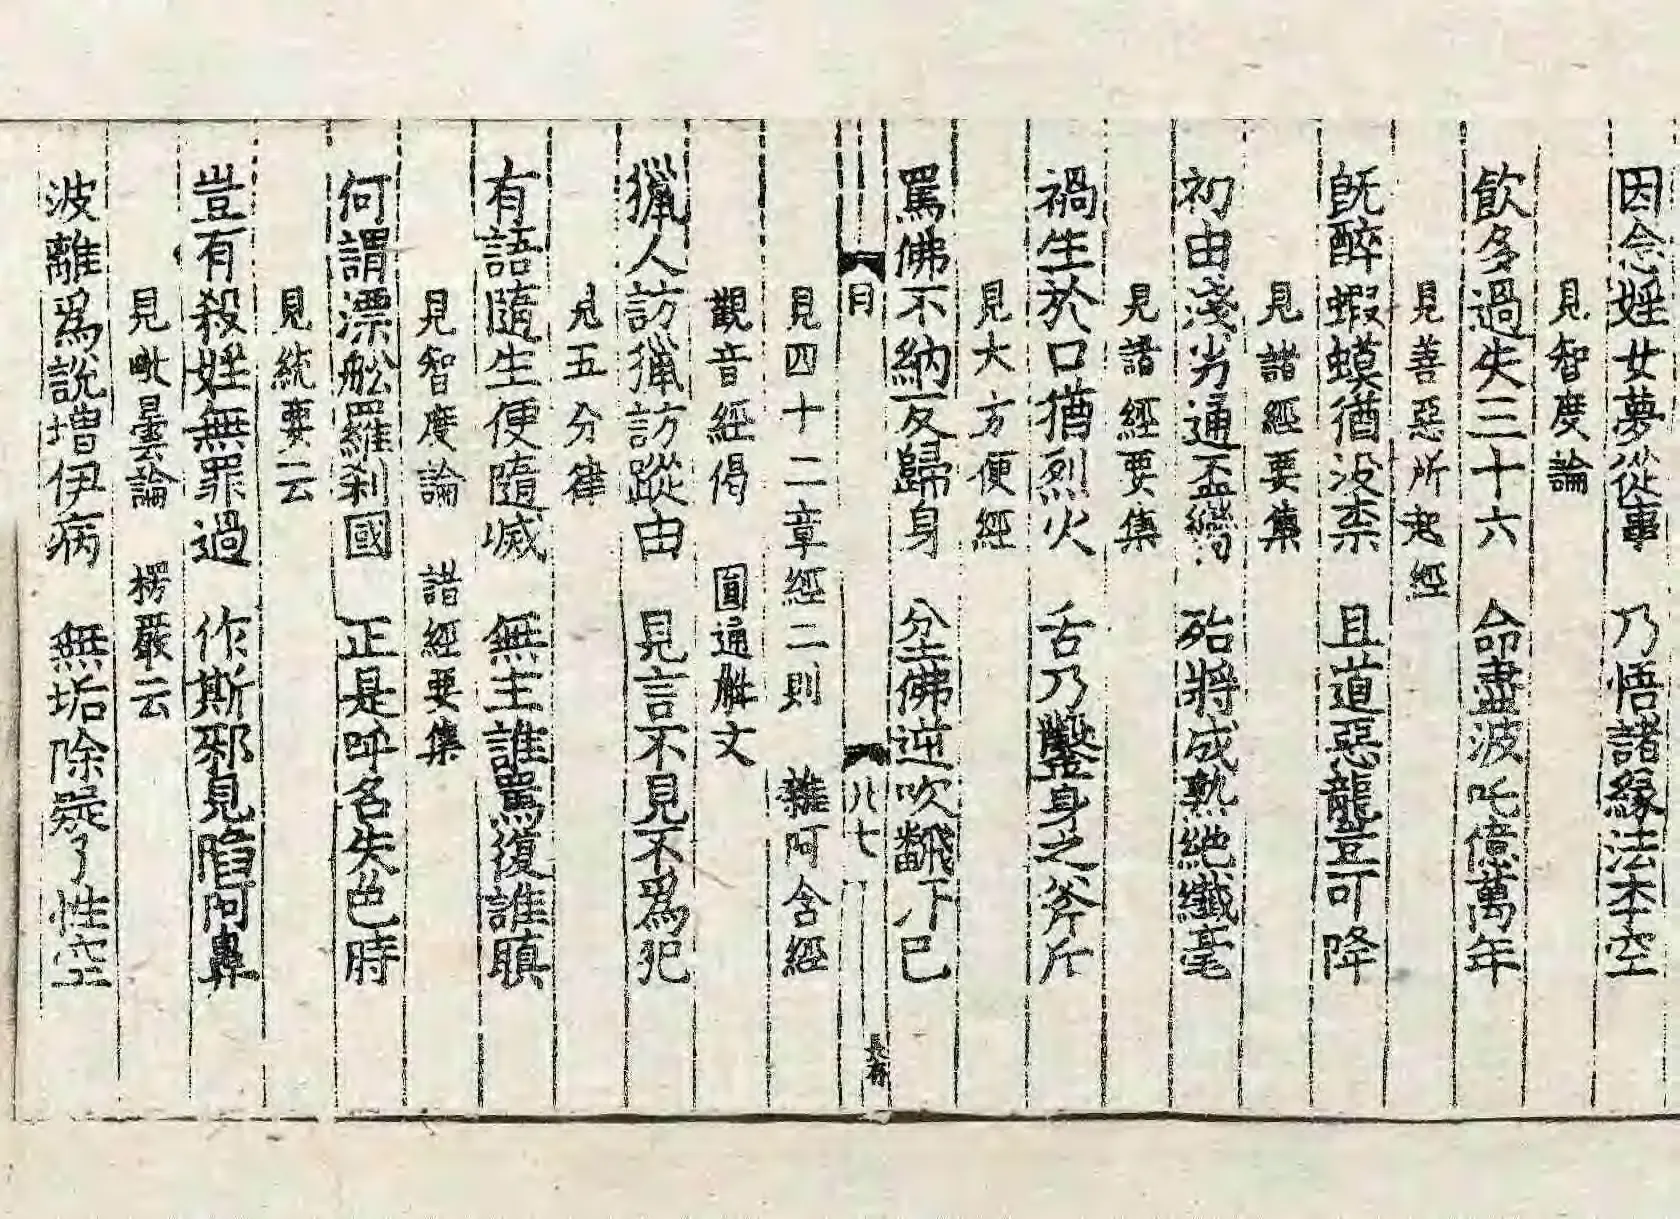 因念婬女夢從事 乃悟諸緣法本空
見智度論
飲多過失三十六 命盡波吒億萬年
見善惡所起經
旣醉蝦蟆猶没柰 且道惡龍豈可降
見諸經要集
初由淺劣通盃 殆將成熟絕纖毫
見諸經要集
禍生於口猶烈火 舌乃鑿身之斧斤
見大方便經
罵佛不納反歸身 坌佛逆吹翻下已
月 八七 長存
見四十二章經二則 雜阿含經
觀音經偈 圓通解文
獵人訪獵訪蹤由 見言不見不爲犯
見五分律
有語隨生便隨滅 無主誰罵復誰瞋
見智度論 諸經要集
何謂漂舩羅刹國 正是呼名失色時
見統要云
豈有殺婬無罪過 作斯邪見陷阿鼻
見毗曇論 楞嚴云
波離爲說增伊病 無垢除疑了性空